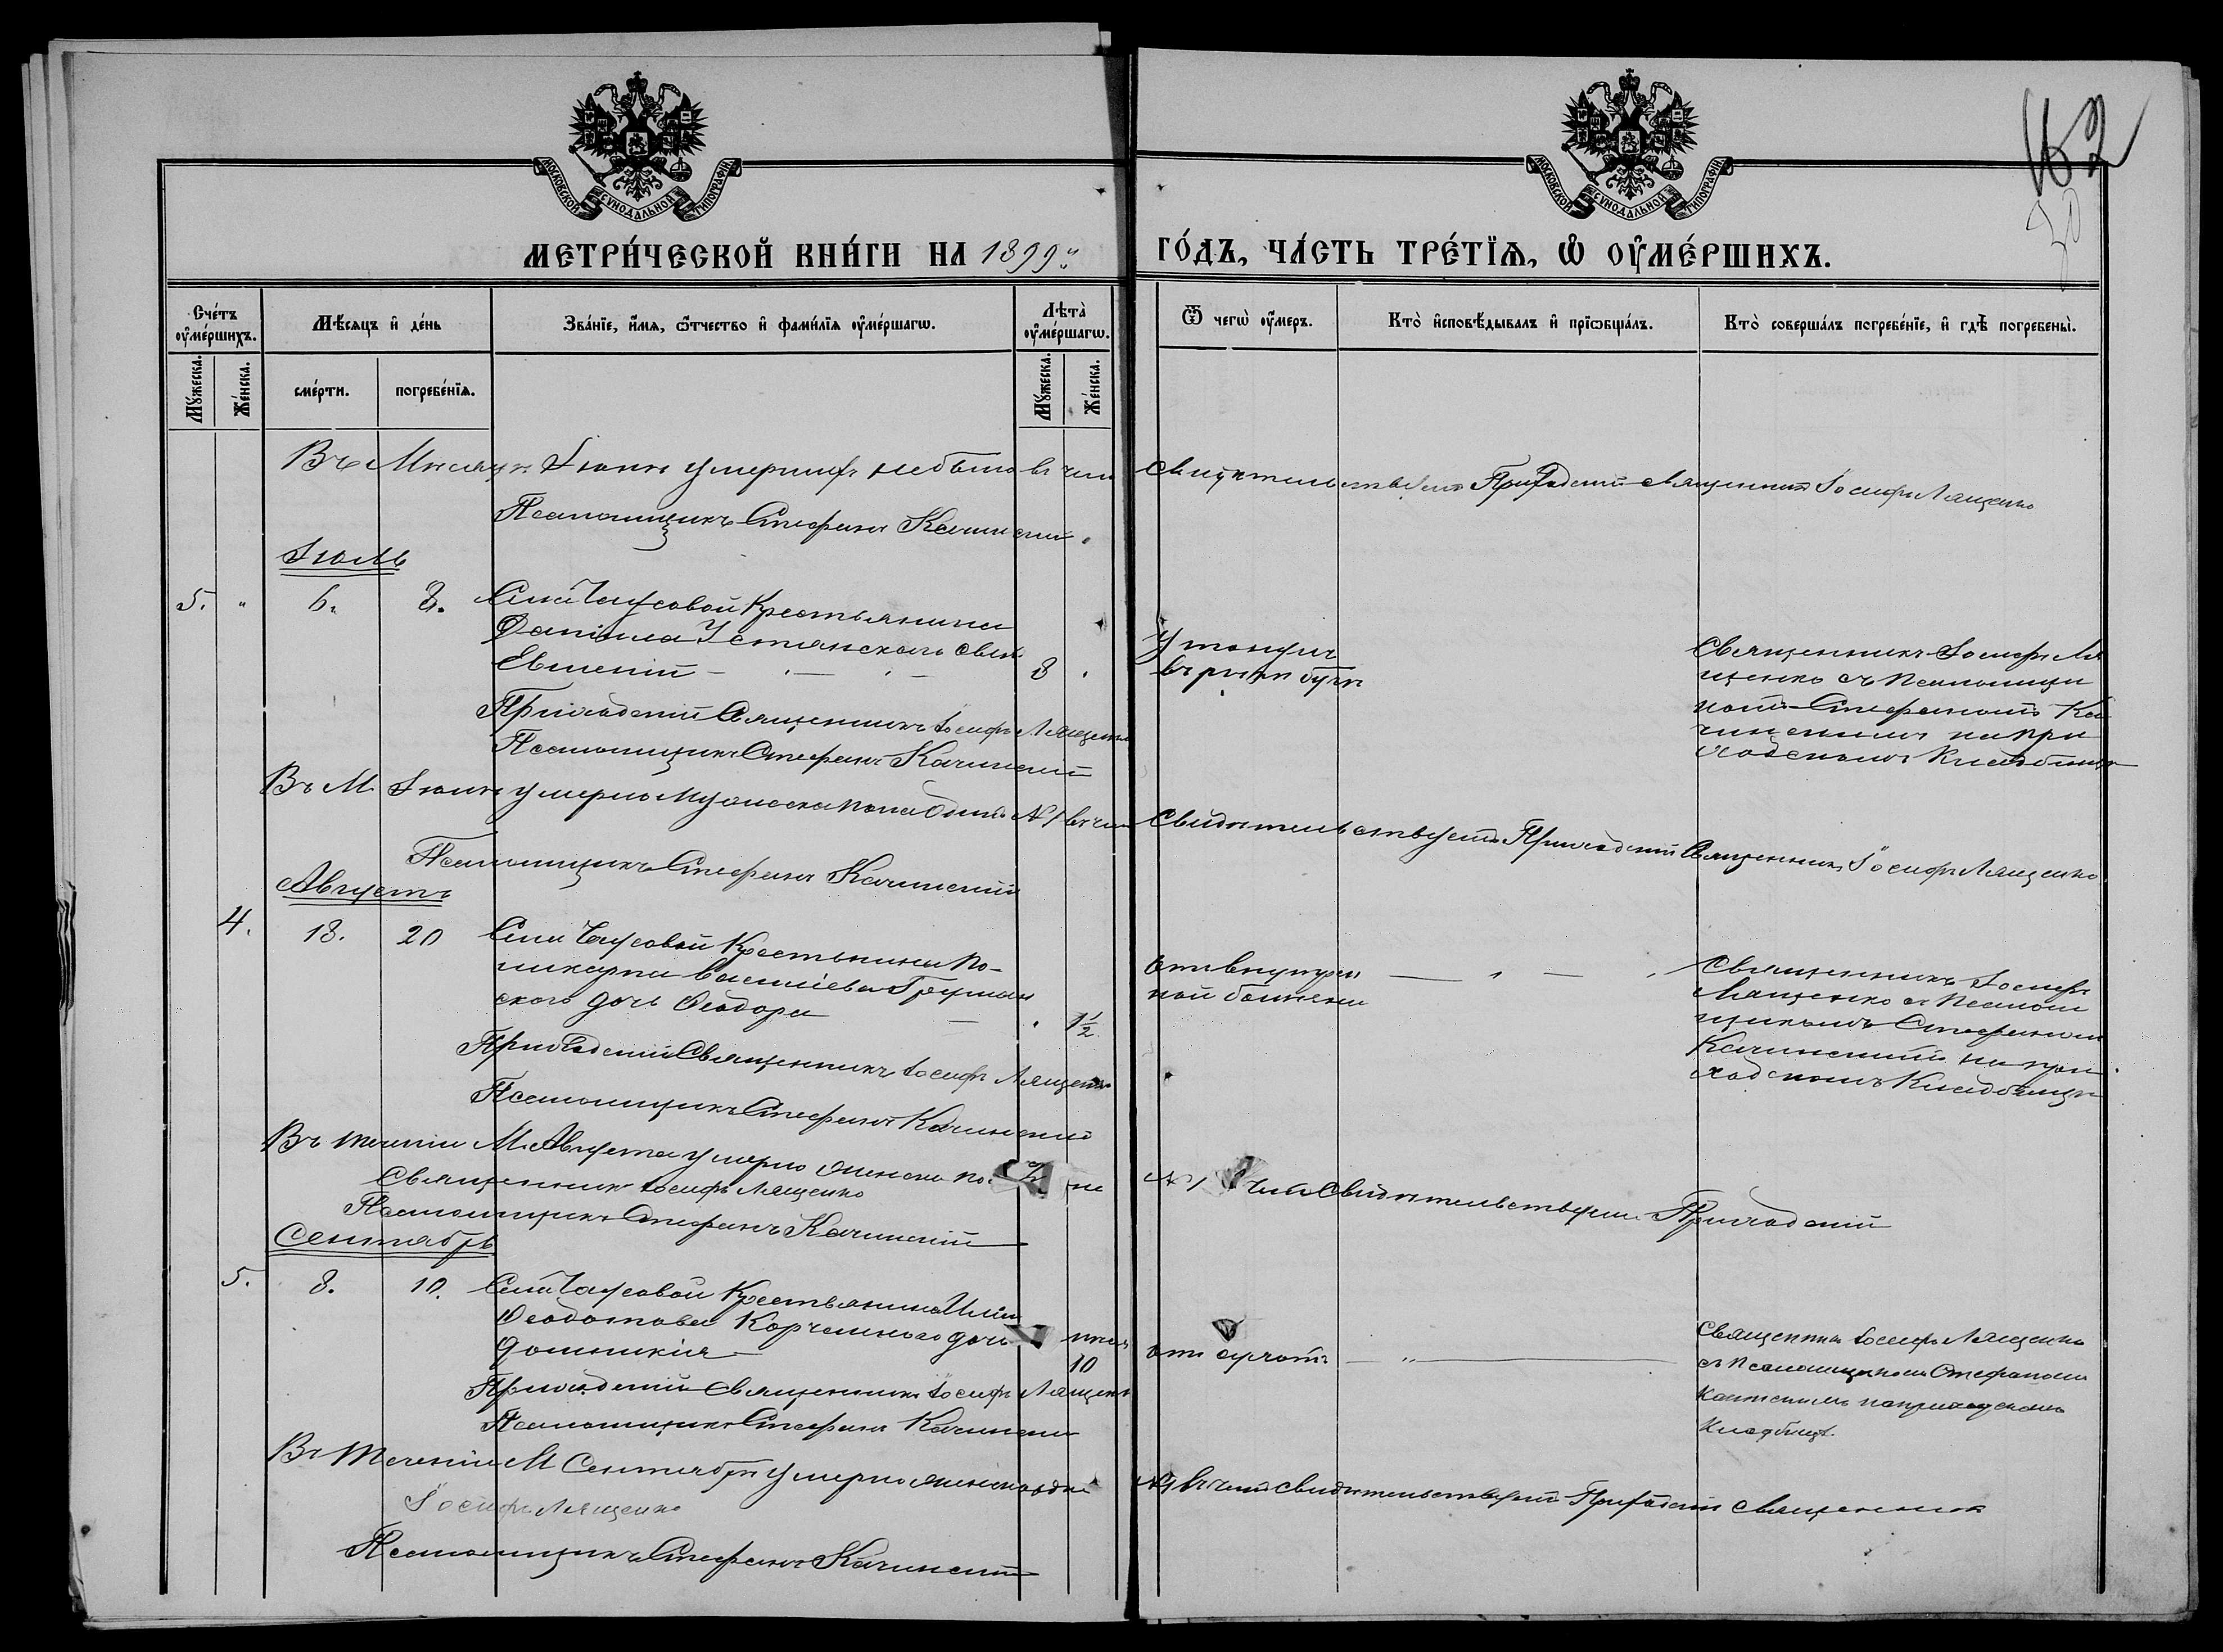 162
30
МОСКОВСКОЙ СѴНОДАЛЬНОЙ ТИПОГРАФІИ
МОСКОВСКОЙ СѴНОДАЛЬНОЙ ТИПОГРАФІИ
МЕТРИ́ЧЕСКОЙ КНИ́ГИ НА 1899й ГО́ДЪ, ЧА́СТЬ ТРЕ́ТЇѦ, Ѡ҆ ОУ҆МЕ́РШИХЪ.
Сче́тъ оу҆ме́ршихъ.
Мꙋ́жеска.
Же́нска.
Мѣ́сѧцъ и҆ де́нь
сме́рти.
погребе́нїѧ.
Зва́нїе, и҆́мѧ, ѻ҆́тчество и҆ фами́лїѧ оу҆ме́ршагѡ.
Лѣта̀ оу҆ме́ршагѡ.
Мꙋ́жеска.
Же́нска.
Ѿ чегѡ̀ оу҆́меръ.
Кто̀ и҆сповѣ́дывалъ и҆ прїѡбща́лъ.
Кто̀ соверша́лъ погребе́нїе, и҆ гдѣ̀ погребены̀.
Въ Мѣсяцѣ Іюнѣ умершихъ небыло въ чемъ свидѣтельствуетъ Приходскій священникъ Іосифъ Лященко
Псаломщикъ Стефанъ Качинскій.
Іюль
5. " 6. 8. Села Чаусовой Крестьянина
Даніила Устянскаго сынъ
Евменій 8
Утонулъ
въ рѣкѣ бугѣ
Священникъ Іосифъ Ля
щенко съ псаломщи
комъ Стефаномъ Ка
чинскимъ на при
ходскомъ кладбищѣ
Приходскій Священникъ Іосифъ Лященко
Псаломщикъ Стефанъ Качинскій
Въ М. Іюлѣ умерло мужеска пола одинъ № 1 въ чемъ Свидѣтельствуетъ Приходскій Священникъ Іосифъ Лященко
Псаломщикъ Стефанъ Качинскій
Августъ
4. 18. 20 Села Чаусовой Крестьянина По-
ликарпа Василіева
скаго дочь Ѳеодора 1½
отъ внутрен
ной болѣзни
Священникъ Іосифъ
Лященко съ псалом
щикомъ Стефаномъ
Качинскимъ на при
ходскомъ Кладбищѣ
Приходскій Священникъ Іосифъ Лященко
Псаломщикъ Стефанъ Качинскій
Въ теченіи М. Августа умерло женска по № 1 чемъ Свидѣтельствуетъ Приходскій
Священникъ Іосифъ Лященко
Псаломщикъ Стефанъ Качинскій
Сентябрь
5. 8. 10. Села Чаусовой Крестьянина Иліи
Ѳеодотова дочь
Домникія 10
отъ
Священникъ Іосифъ Лященко
съ Псаломщикомъ Стефаномъ
Качинскимъ на приходскомъ
Кладбищѣ.
Приходскій Священникъ Іосифъ Лященко
Псаломщикъ Стефанъ Качинскій
Въ Теченіи М Сентября умерло женска одна №1 въ чемъ свидѣтельствуетъ Приходскій священникъ
Іосифъ Лященко
Псаломщикъ Стефанъ Качинскій